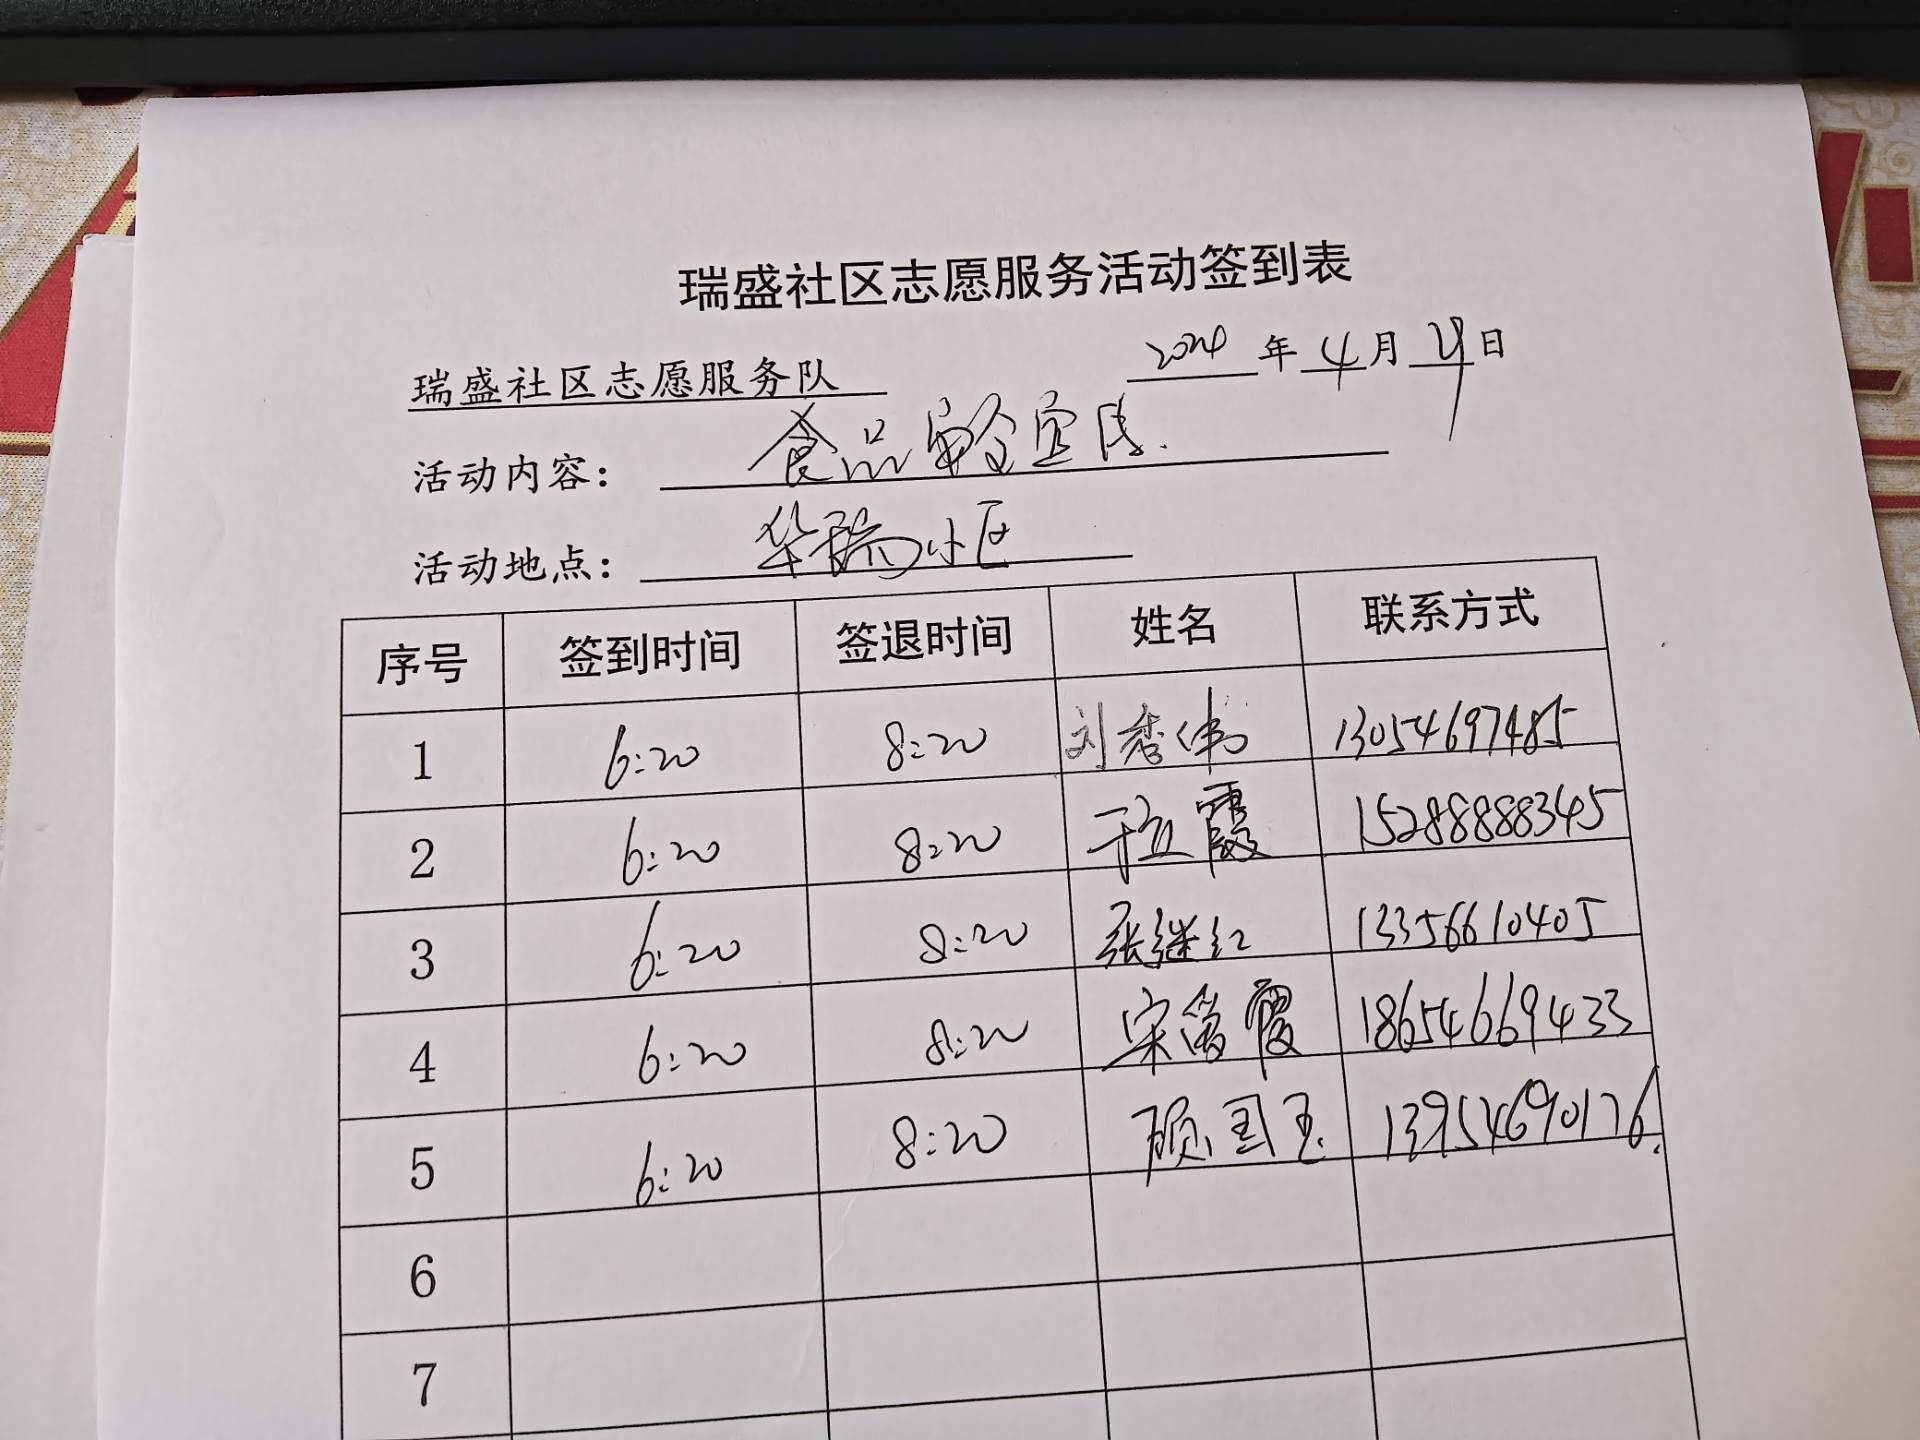 瑞盛社区志愿服务活动签到表
瑞盛社区志愿服务队 2024 年 4 月 日
活动内容： 食品安全宣传.
活动地点： 华瑞小区
序号 签到时间 签退时间 姓名 联系方式
1 6:20 8:20 刘秀伟 13054697485
2 6:20 8:20 于立霞 15288888345
3 6:20 8:20 张继红 13356610405
4 6:20 8:20 宋 霞 18654669433
5 6:20 8:20 顾国玉. 13954690176.
6
7